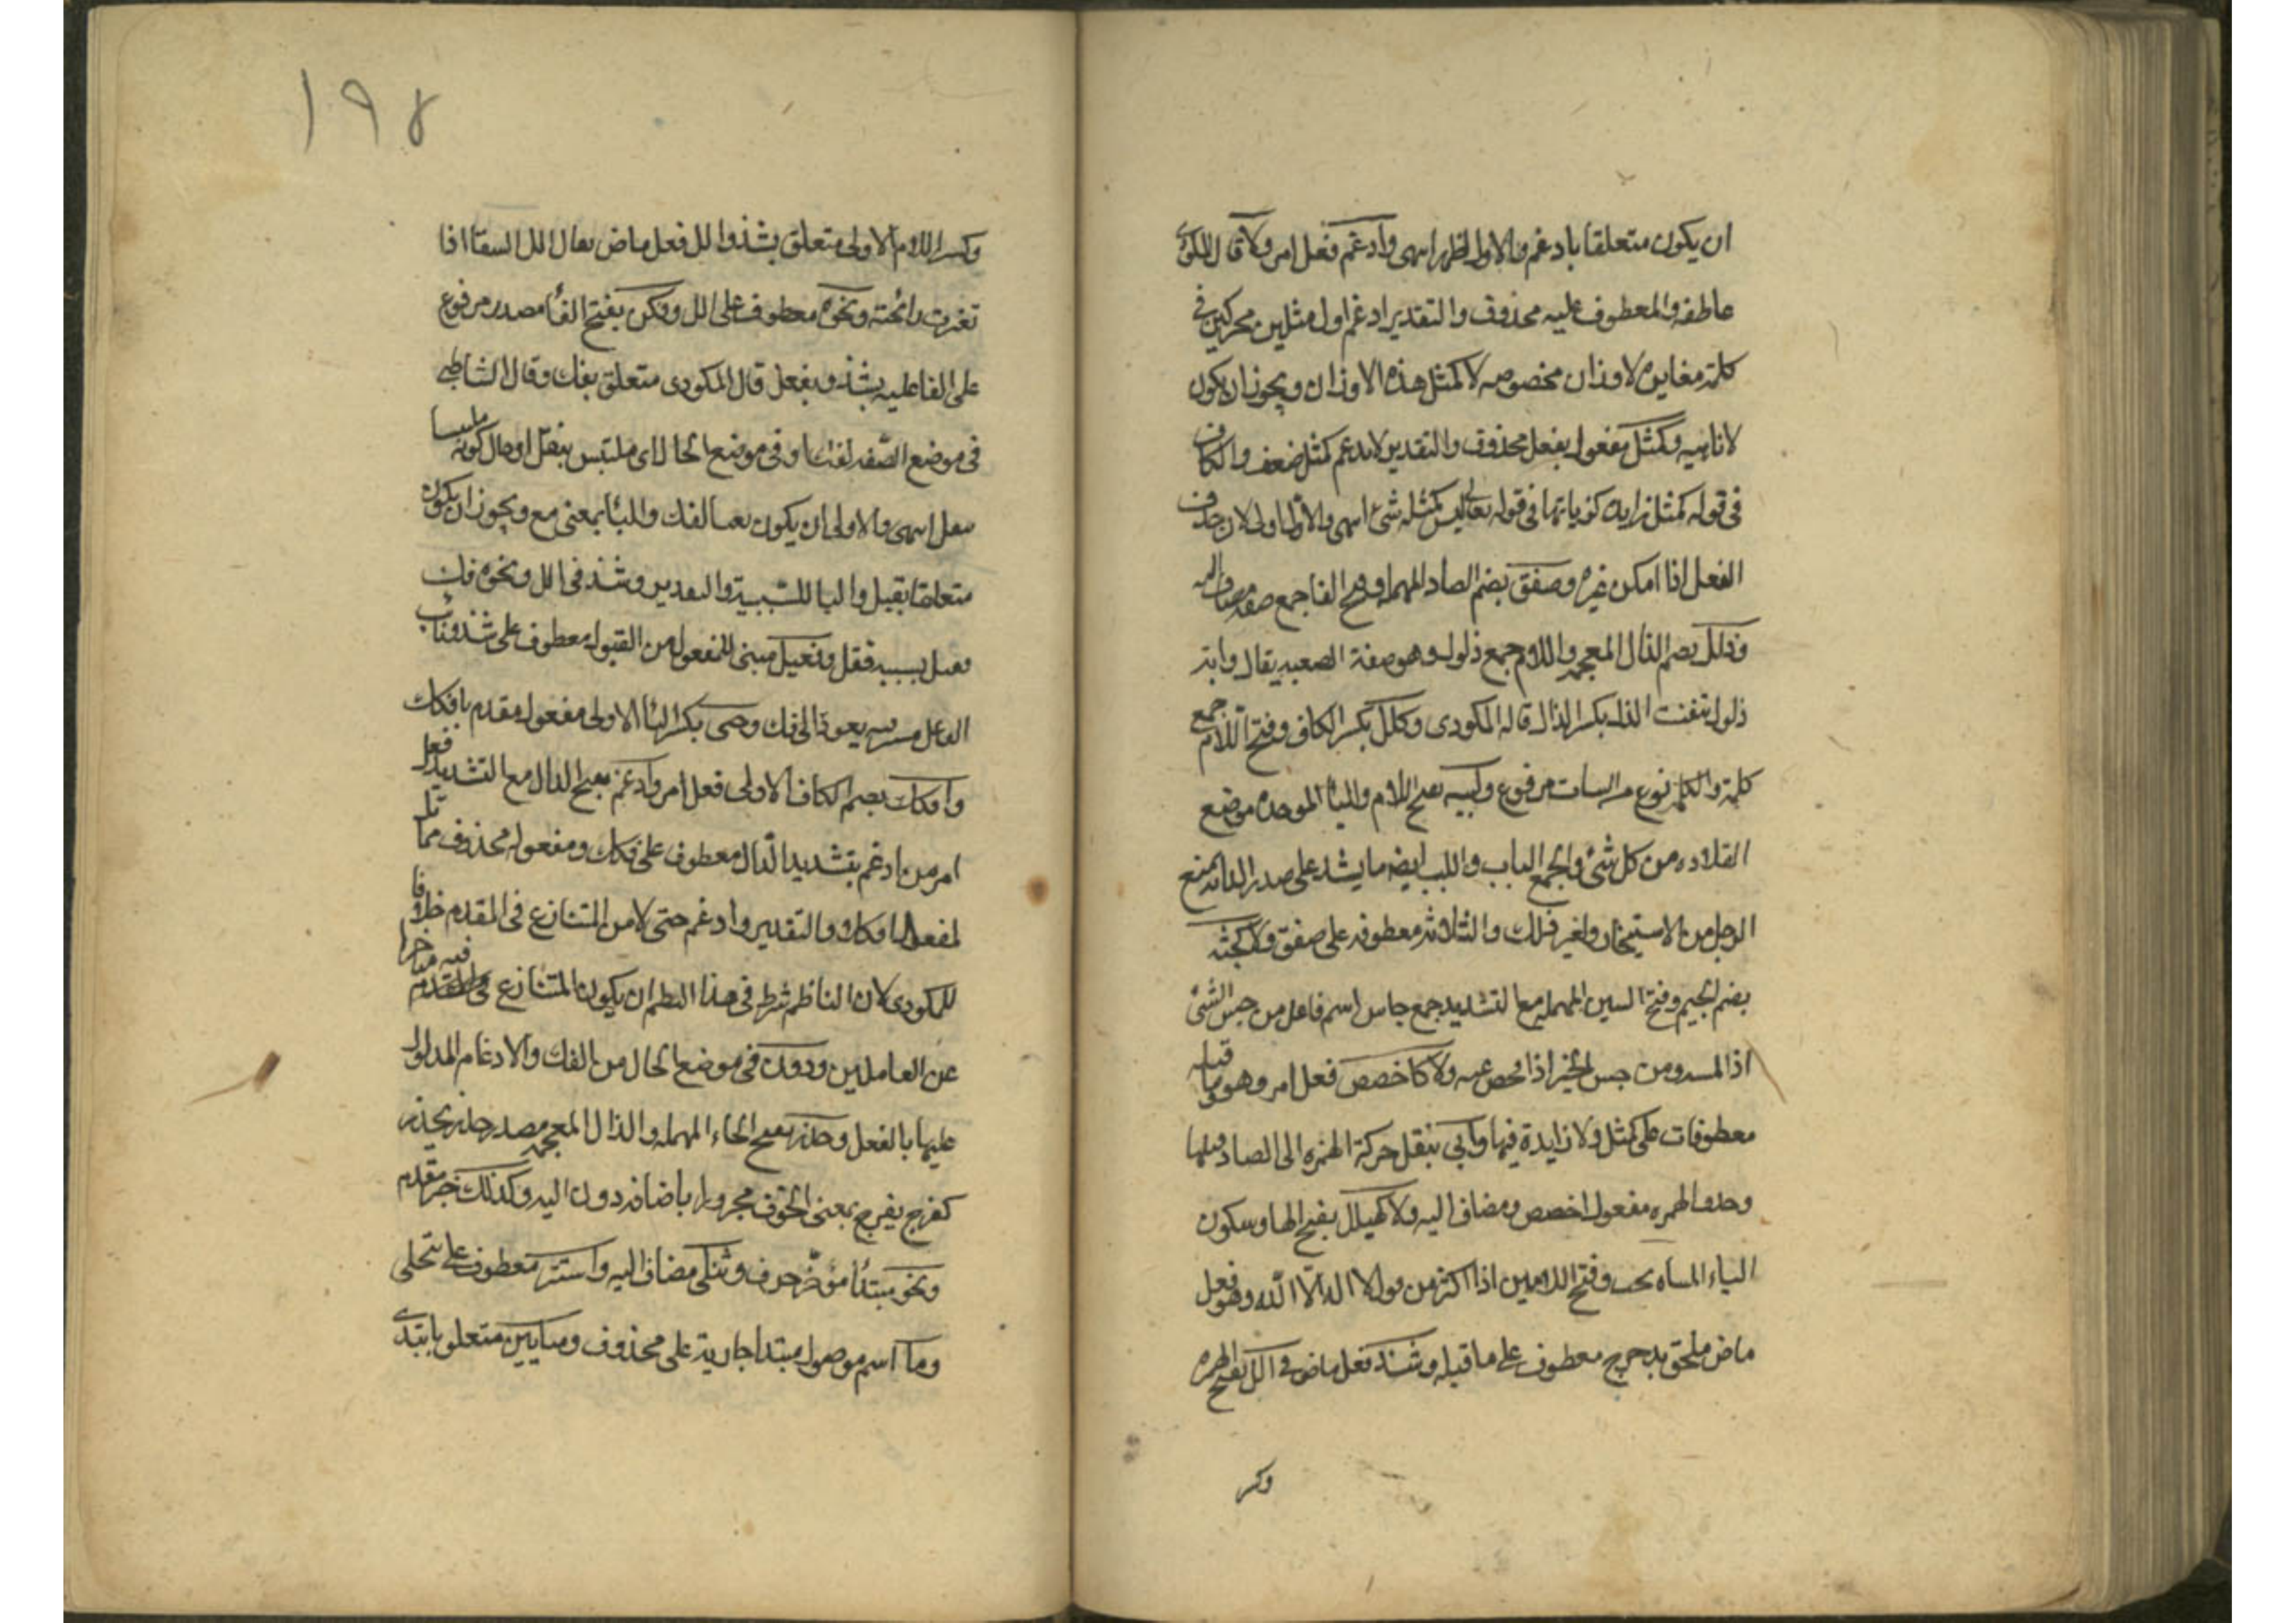 ان يكون متعلقا بادغم والاول اظهر انتهى وادغم فعل امر ولا قال المكودي
عاطفه والمعطوف عليه محذوف والتقدير ادغم اول مثلين محركين في
كلمة مغايره لاوزان مخصوصه لا كمثل هذه الاوزان ويجوز ان يكون
لا ناهيه وكمثل مفعول بفعل محذوف والتقدير لا تدغم كمثل ضعف والكاف
في قوله كمثل زايده كزيادتها في قوله تعالى ليس كمثله شئ انتهى والاول اولى لان حذف
الفعل اذا امكن غيره وصفف بضم الصاد المهمله وفتح الفا جمع صفه مضاف اليه
وذلل بضم الذال المعجمه واللام جمع ذلول وهو صفة الصعبه يقال دابة
ذلول بينت الذل بكسر الذال قاله المكودي وكلل بكسر الكاف وفتح اللام جمع
كلة والكلة نوع من الثياب مرفوع ولبب بفتح اللام والباء الموحده موضع
القلاده من كل شئ والجمع الباب واللبب ايضا ما يشد على صدر الدابة يمنع
الرحل من الاستيخار ولغير ذلك والثلاثه معطوفه على صفف ولا كجسس
بضم الجيم وفتح السين المهمله مع التشديد جمع جاس اسم فاعل من جس الشئ
اذا لمسه ومن جس الخبر اذا فحص عنه ولا كاخصص فعل امر وهو وما قبله
معطوفات على كمثل ولا زايدة فيها وابي بنقل حركة الهمزه الى الصاد قبلها
وحذف الهمزه مفعول اخصص ومضاف اليه ولا كهيلل بفتح الها وسكون
الياء المثناه تحت وفتح اللامين اذا اكثر من قول لا اله الا الله وهو فعل
ماض ملحق بدحرج معطوف على ما قبله وشذ فعل ماض في الل بفتح الهمزه
وكسر
١٩٨
وكسر اللام الاولى متعلق بشذ والل فعل ماض يقال الل السقا اذا
تغيرت رائحته ونحوه معطوف على الل وفك بفتح الفا مصدر مرفوع
على الفاعليه بشذ وبنقل قال المكودي متعلق بفك وقال الشاطبي
في موضع الصفه لفك او في موضع الحال اي ملتبس بنقل او حال كونه ملتبسا
بنقل انتهى والاولى ان يكون نعتا لفك والباء بمعنى مع ويجوز ان يكون
متعلقا بقبل والبا للسببية والتقدير وشذ في الل ونحوه فك
نقل بسببه فقبل وقبل مبني للمفعول من القبول معطوف على شذ ونائب
الفاعل مستتر فيه يعود الى فك وحيي بكسر الياء الاولى مفعول مقدم بافكك
وافكك بضم الكاف الاولى فعل امر وادغم بفتح الدال مع التشديد فعل
امر من ادغم بتشديد الدال معطوف على افكك ومفعوله محذوف مماثل
لمفعول افكك والتقدير وادغم حيي لا من التنازع في المقدم خلافا
للمكودي لان الناظم شرط في هذا النظم ان يكون المتنازع فيه متاخرا
عن العاملين ودون في موضع الحال من الفك والادغام المدلول
عليهما بالفعل وحذر بفتح الحاء المهمله والذال المعجمه مصدر حذر يحذر
كفرح يفرح بمعنى الخوف مجرور باضافة دون اليه وكذلك خبر مقدم
ونحو مبتدأ مؤخر حرف وتتجلى مضاف اليه واستتر معطوف على تتجلى
وما اسم موصول مبتدا جارية على محذوف وبتايين متعلق بابتدي